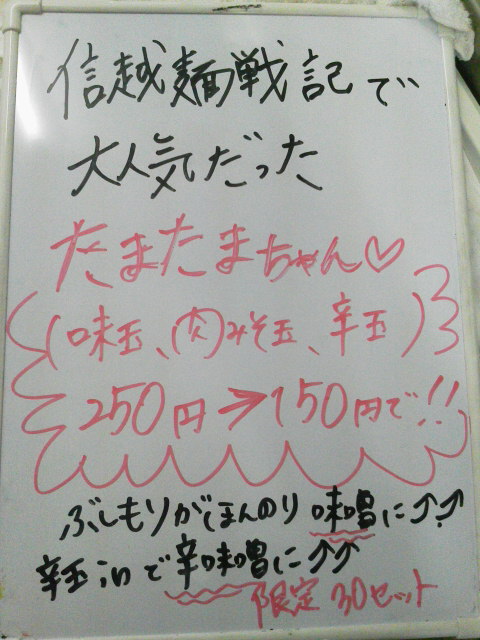 信越麺戦記で
大人気だった
たまたまちゃん♡
(味玉、(肉)みそ玉、辛玉)
250円→150円で!!
ぶしもりがほんのり味噌に⤴⤴
辛玉inで辛味噌に⤴⤴
限定30セット